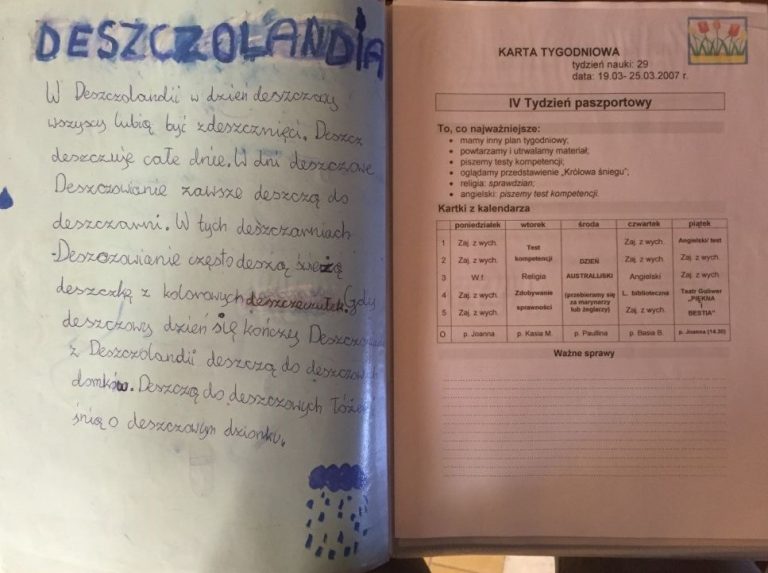 DESZCZOLANDIA
W Deszczolandii w dzień deszczowy
wszyscy lubią być zdeszcznięci. Deszcz
deszczuje całe dnie. W dni deszczowe
Deszczowianie zawsze deszczą do
deszczarni. W tych deszczarniach
Deszczowianie często deszczą świeżą
deszczkę z kolorowych deszczewułek. Gdy
deszczowy dzień się kończy
z Deszczolandii deszczą do
domków. Deszczą do deszczowych
śnią o deszczowym dzionku.
KARTA TYGODNIOWA
tydzień nauki: 29
data: 19.03- 25.03.2007 r.
IV Tydzień paszportowy
To, co najważniejsze:
• mamy inny plan tygodniowy;
• powtarzamy i utrwalamy materiał;
• piszemy testy kompetencji;
• oglądamy przedstawienie „Królowa śniegu”;
• religia: sprawdzian;
• angielski: piszemy test kompetencji.
Kartki z kalendarza
poniedziałek wtorek środa czwartek piątek
1 Zaj. z wych. Test kompetencji DZIEŃ AUSTRALIJSKI (przebieramy się za marynarzy lub żeglarzy) Zaj. z wych. Angielski/ test
2 Zaj. z wych. Zaj. z wych. Zaj. z wych
3 W.f. Religia Angielski Zaj. z wych
4 Zaj. z wych. Zdobywanie sprawności L. biblioteczna Teatr Guliwer „PIĘKNA I BESTIA”
5 Zaj. z wych. Zaj. z wych.
O p. Joanna p. Kasia M. p. Paulina p. Basia B. p. Joanna (14.30)
Ważne sprawy